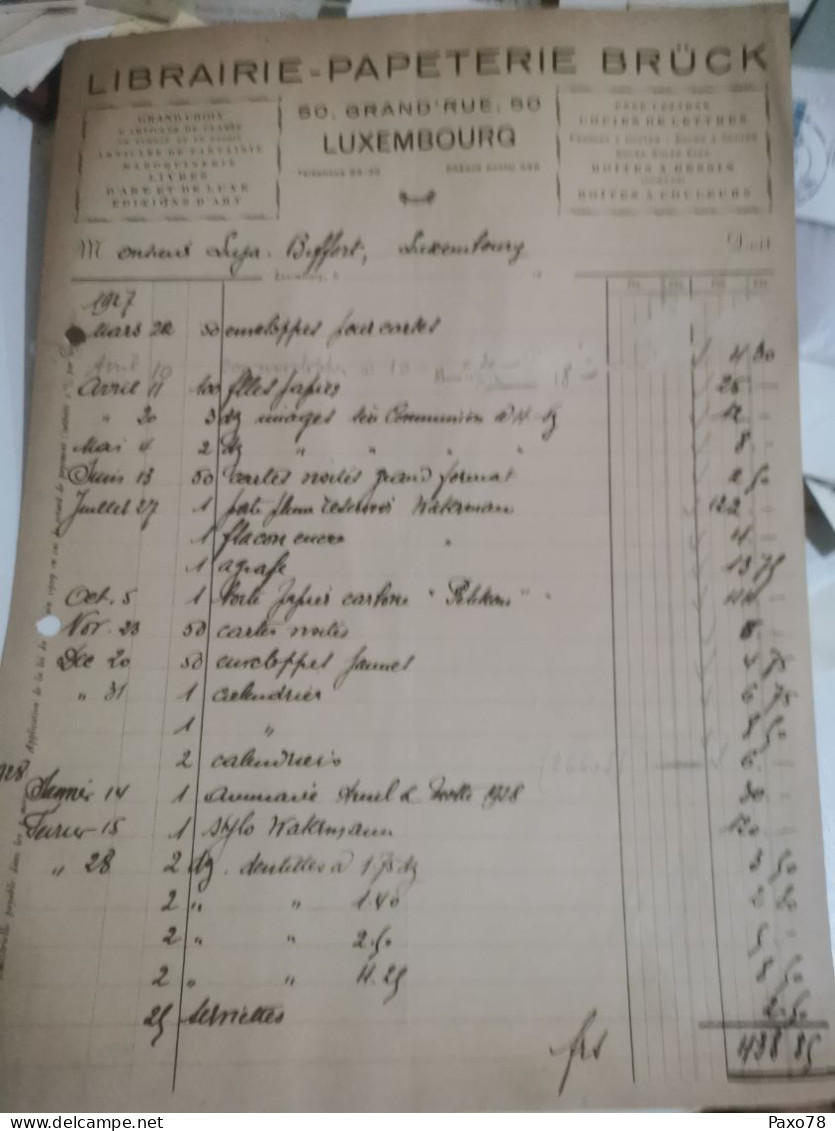 LIBRAIRIE-PAPETERIE BRÜCK
50, GRAND'RUE, 50
LUXEMBOURG
GRAND CHOIX
MAROQUINERIE
LIVRES
D'ART ET DE LUXE
EDITIONS D'ART
COPIES DE LETTRES
BOITES A DESSIN
BOITES A COULEURS
Monsieur Luja-Beffort, Luxembourg Doit
1927
Mars 22 50 enveloppes pour cartes 4 30
Avril 11 100 flles papier 25 -
" 20 3 dz images 1ère Communion à 4.- dz 12 -
Mai 4 2 dz " " " " 8 -
Juin 13 50 cartes visites grand format 2 50
Juillet 27 1 porte plume reservoir Waterman 122 -
1 flacon encre " 4 -
1 agrafe 13 75
Oct. 5 1 boîte papier carbone "Pelikan" 44 -
Nov. 23 50 cartes visites 8 -
Déc 20 50 enveloppes jaunes 4 75
" 31 1 calendrier 6 75
1 " 8 50
2 calendriers 6 -
1928 Janvier 14 1 annuaire 1928 30 -
Février 15 1 stylo Watermann 120 -
" 28 2 dz. dentelles à 1.75 dz 3 50
2 " " 1.40 2 80
2 " " 2.50 5 -
2 " " 4.25 8 50
25 serviettes 2.50
frs 438 85
Paxo78